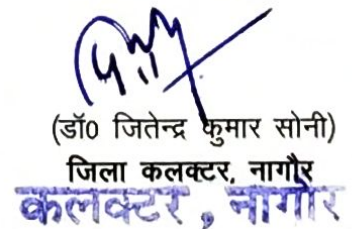 (डॉ0 जितेन्द्र कुमार सोनी)
जिला कलक्टर, नागौर
कलक्टर , नागौर